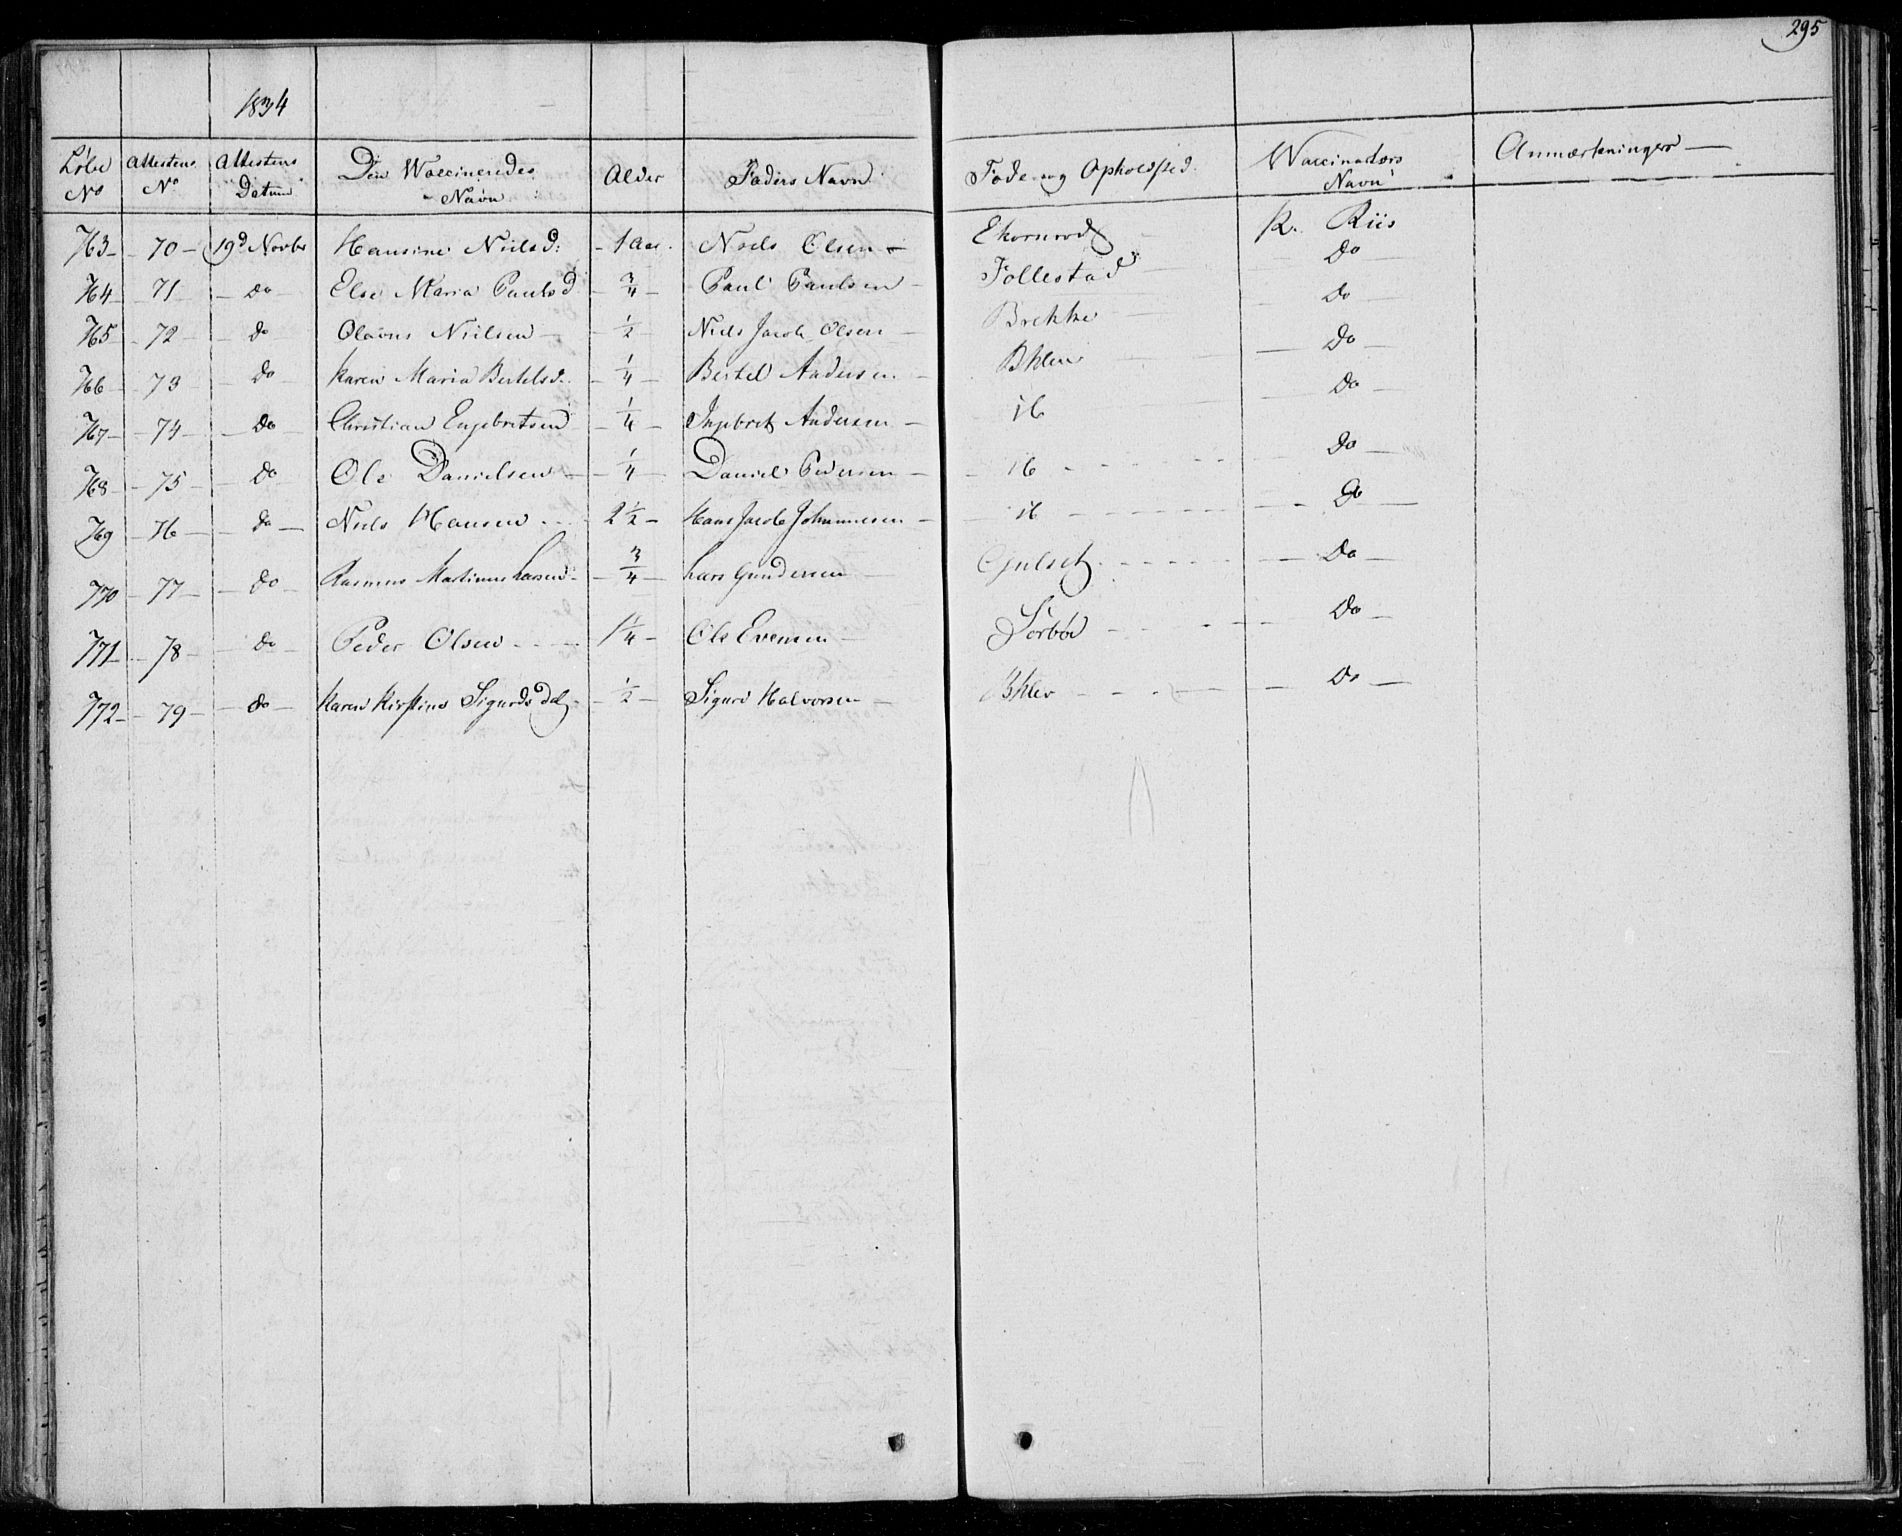 295
1834
Løbe No | Attestens No | Attestens Datum | Den Waccineredes Navn | Alder | Faders Navn | Føde og Opholdsted | Waccinateurs Navn | Anmærkninger
763 | 70 | 19d Novbr | Hansine Nielsd: | 1 Aar | Niels Olsen | Ekornrod | K. Riis
764 | 71 | do | Else Maria Paulsd | 3/4 | Paul Paulsen | Follestad | Do
765 | 72 | do | Olavus Nielsen | 1/2 | Niels Jacob Olsen | Brekke | Do
766 | 73 | do | Karen Maria Bertelsd. | 1/4 | Bertel Andersen | Bklev | Do
767 | 74 | do | Christian Engebretsen | 1/4 | Ingebret Andersen | ib | Do
768 | 75 | do | Ole Danielsen | 1/4 | Daniel Pedersen | ib | Do
769 | 76 | do | Niels Hansen | 2 1/2 | Hans Jacob Johannesen | ib | Do
770 | 77 | do | Rasmus Matinus Larsen | 3/4 | Lars Gundersen | Gulset | Do
771 | 78 | do | Peder Olsen | 1 1/4 | Ole Evensen | Sørbøe | Do
772 | 79 | do | Karen Kirstine Sigurds D. | 1/2 | Sigurd Halvorsen | Bklev | Do